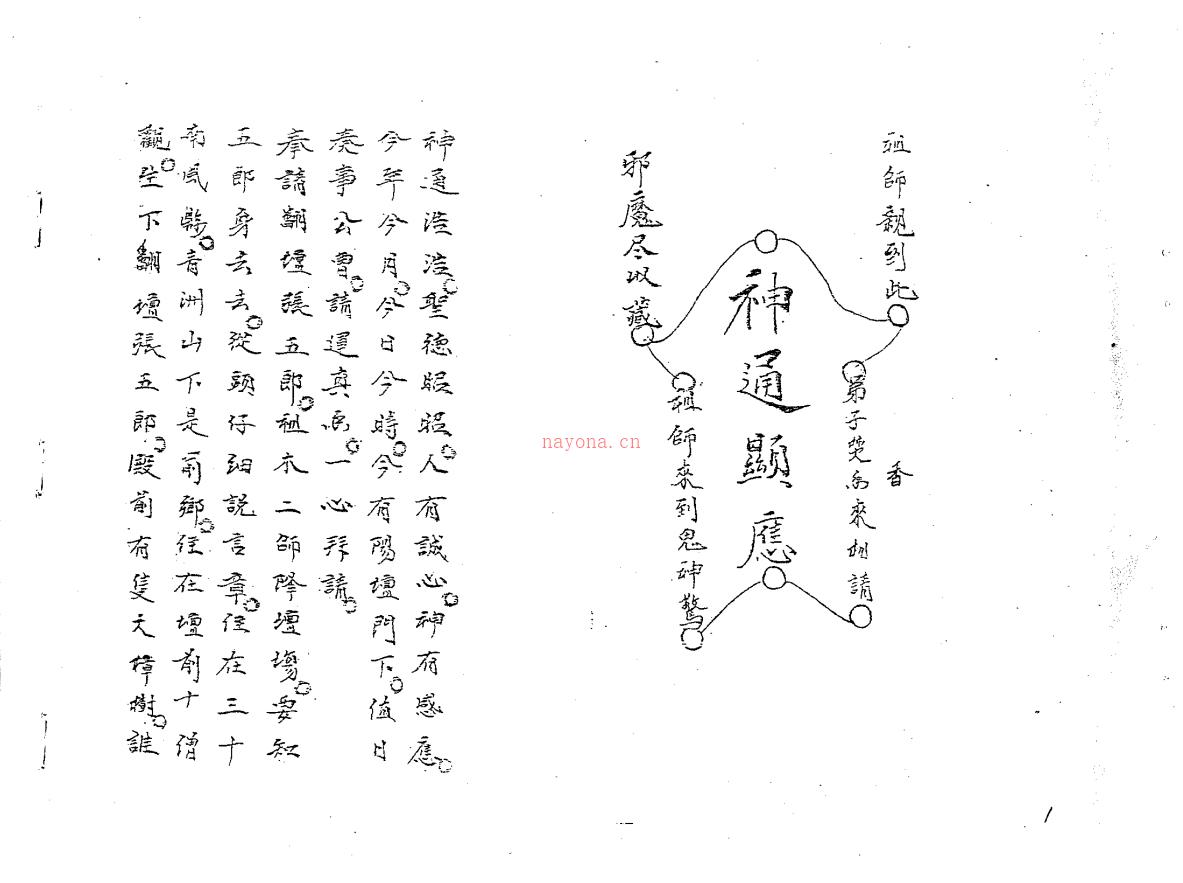 祖師親到此
弟子焚香來相請
神通顯應
祖師來到鬼神驚
邪魔尽收藏
神通浩浩聖德昭昭人有誠心神有感應
今年今月今日今時今有陽壇門下值日
奏事公曹請運真香一心拜請
奉請翻壇張五郎祖本二師降壇場要知
五郎身去去從頭仔細說言章住在三十
南風縣青洲山下是前鄉住在壇前十僧
觀坐下翻壇張五郎殿前有隻大樟樹誰
nayona.cn
1